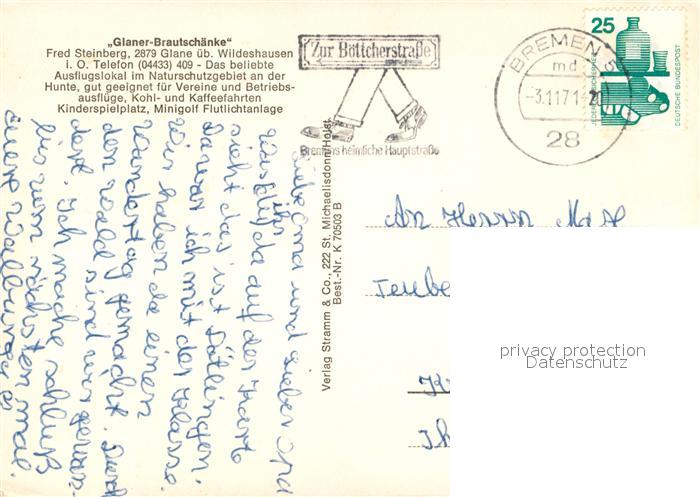 „Glaner-Brautschänke“
Fred Steinberg, 2879 Glane üb. Wildeshausen
i. O. Telefon (04433) 409 - Das beliebte
Ausflugslokal im Naturschutzgebiet an der
Hunte, gut geeignet für Vereine und Betriebs-
ausflüge, Kohl- und Kaffeefahrten
Kinderspielplatz, Minigolf Flutlichtanlage
Zur Böttcherstraße
Bremens heimliche Hauptstraße
BREMEN 5
md
-3.11.71-20
28
25
JEDERZEIT SICHERHEIT
DEUTSCHE BUNDESPOST
Liebe Oma und lieber Opa
Was ihr da auf der Karte
sieht das ist Dötlingen.
Da war ich mit der Klasse.
Wir haben da einen
Wandertag gemacht. Durch
den Wald sind wir gewan-
dert. Ich mache schluß
bis zum nächsten mal.
Eure Walburga
Verlag Stramm & Co., 222 St. Michaelisdonn/Holst.
Best.-Nr. K 70503 B
An Herrn
privacy protection
Datenschutz